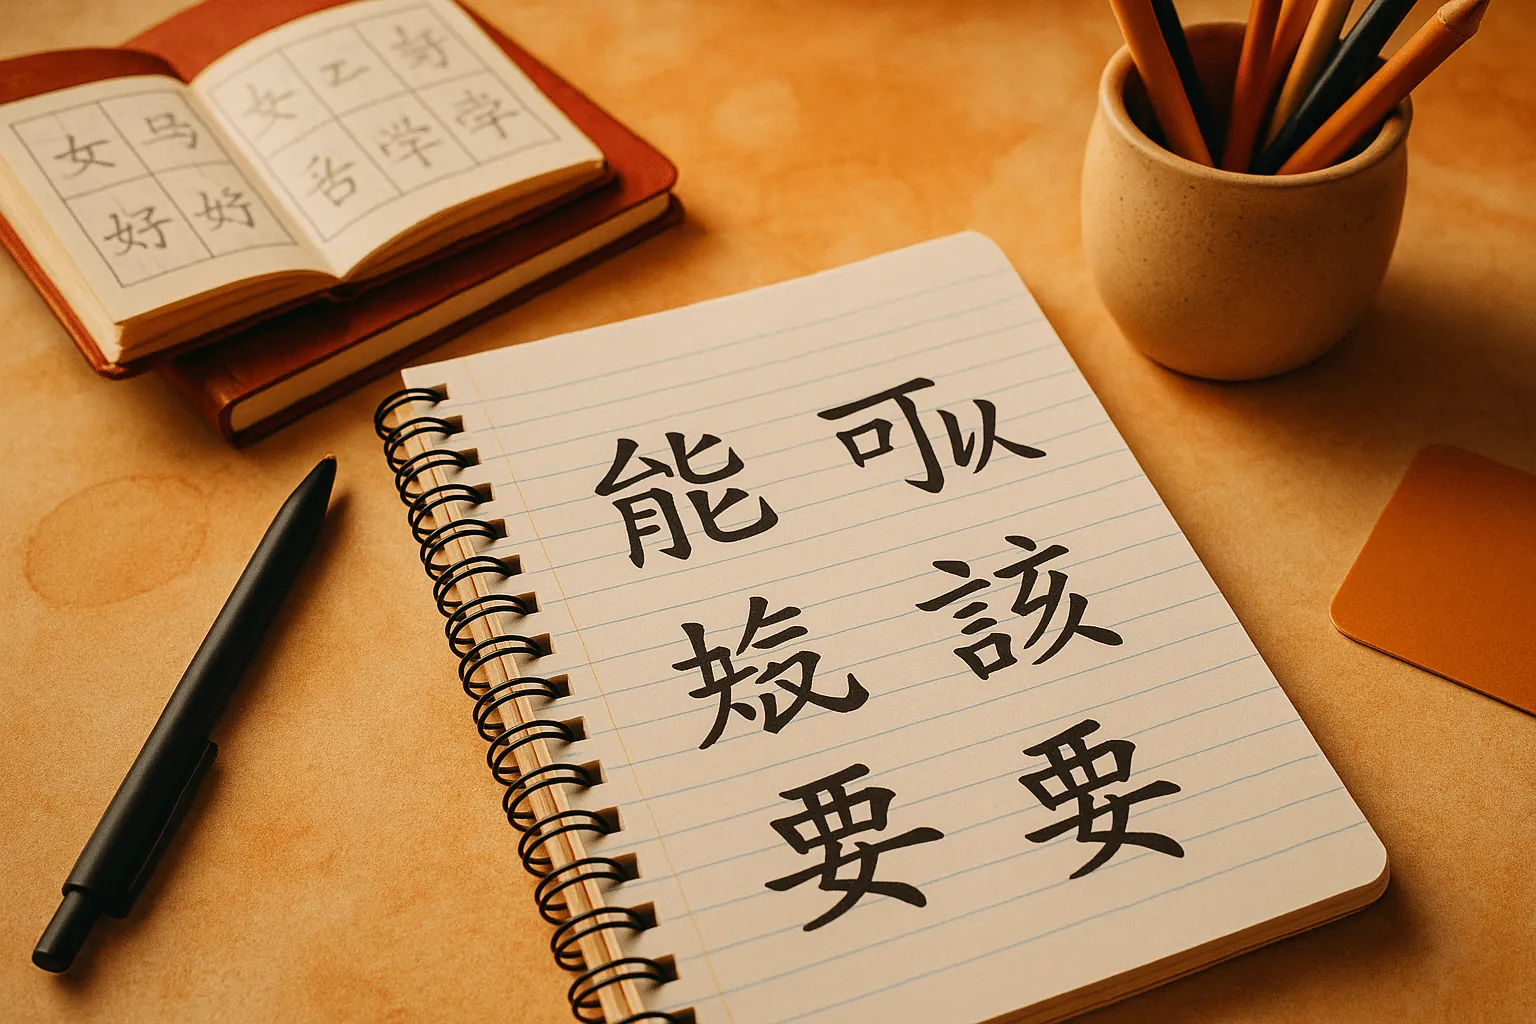 女 马
好 好
女 工 好
舌 学 学
能 可以
該
要 要